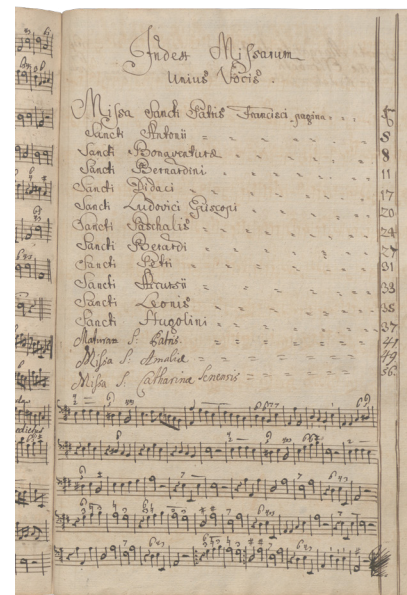 Index Missarum
Unius Vocis.
Missa Sancti Patris Francisci. pagina . . . 1
Sancti Antonii 5
Sancti Bonaventuræ 8
Sancti Bernardini 11
Sancti Didaci 17
Sancti Ludovici Episcopi 20
Sancti Paschalis 24
Sancti Berardi 27
Sancti Petri 31
Sancti Accursii 33
Sancti Leonis 35
Sancti Hugolini 37
S: Patris 41
Missa S. Amaliæ 49
Missa S. Catharinæ Senensis 56.